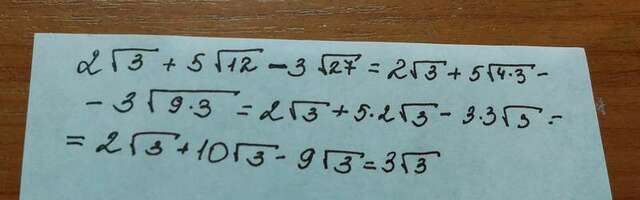 2√3 + 5√12 - 3√27 = 2√3 + 5√4·3 -
- 3√9·3 = 2√3 + 5·2√3 - 3·3√3 =
= 2√3 + 10√3 - 9√3 = 3√3